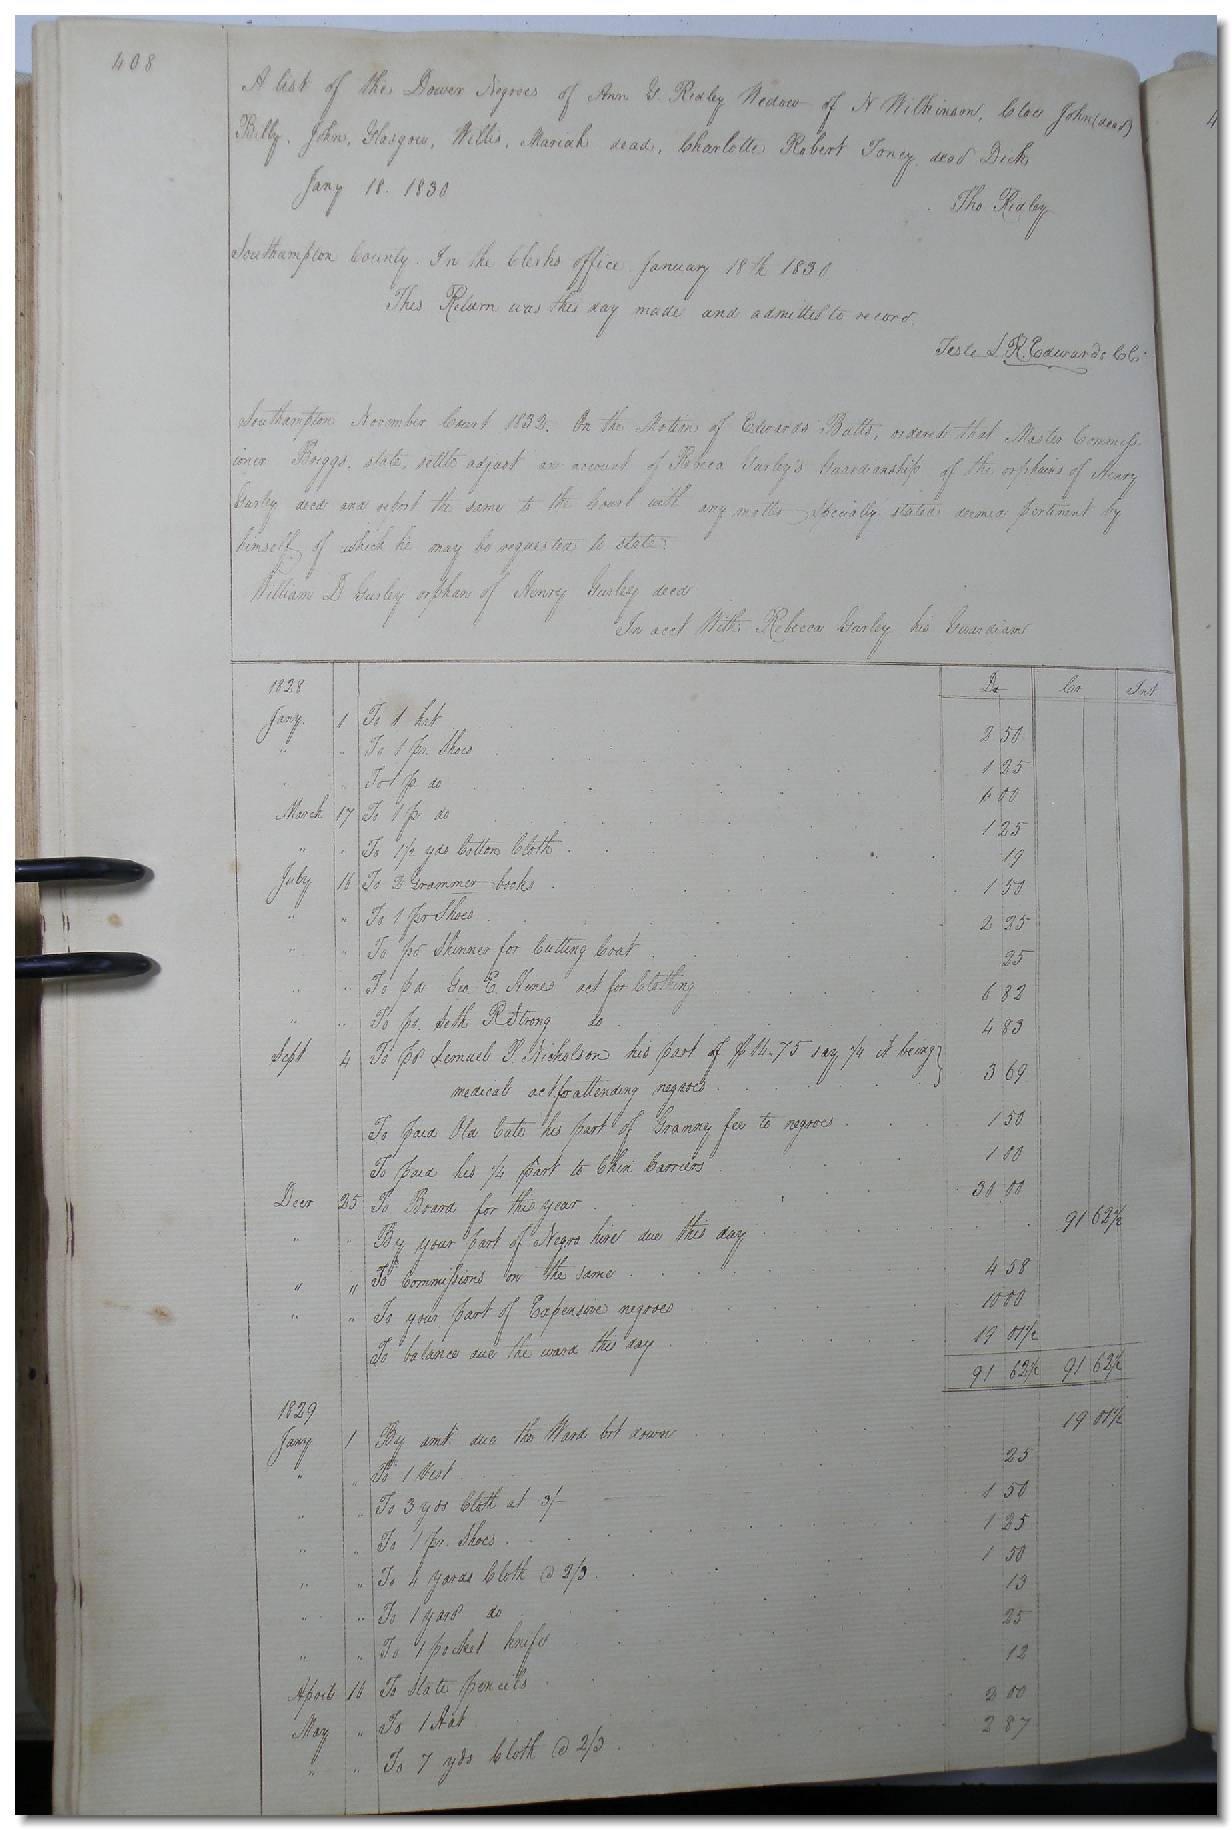 408
A list of the Dower Negroes of Ann G. Ridley Wedow of N Wilkinson, Cloe John (dead)
Billy, John, Glasgow, Willis, Mariah dead, Charlotte Robert Toney dead Dick
Jany 18. 1830
Tho Ridley
Southampton County. In the Clerks office January 18th 1830
This Return was this day made and admitted to record.
Teste L R. Edwards CC
Southampton November Court 1832. On the Motion of Edwards Butts, ordered that Master Commiss-
ioner Briggs, state, settle adjust an account of Rebeca Gurley's Guardianship of the orphans of Henry
Gurley decd and report the same to the Court with any matter specially stated deemed pertinent by
himself of which he may be requested to state.
William D Gurley orphan of Henry Gurley decd
In acct With Rebecca Gurley his Guardian
1828 Dr Cr Int
Jany 1 To 1 hat 2 50
" " To 1 pr. Shoes 1 25
" " To 1 p do 1 00
March 17 To 1 pr do 1 25
" " To 1½ yds Cotton Cloth 19
July 16 To 2 Grammer books 1 50
" " To 1 pr Shoes 2 25
" " To pd Skinner for Cutting Coat 25
" " To pd Geo E. act for Clothing 6 82
" " To pd. Seth R Strong do 4 83
Sept 4 To pd Lemuel Nicholson his part of $14.75 say ¼ it being
medical act for attending negroes 3 69
To paid Old Cate his part of Granny fee to negroes 1 50
To paid his ¼ part to Chin Carriers 1 00
Decr 25 To Board for this year 30 00
" " By your part of Negro hire due this day 91 62½
" " To Commissions on the same 4 58
" " To your part of Expensive negroes 10 00
To balance due the ward this day 19 01½
91 62½ 91 62½
1829
Jany 1 By amt due the Ward brt down 19 01½
" " To 1 Vest 25
" " To 3 yds Cloth at 3/- 1 50
" " To 1 pr. Shoes 1 25
" " To 4 yards Cloth @ 2/3 1 50
" " To 1 yard do 13
" " To 1 pocket knife 25
April 16 To Slate pencils 12
May " To 1 Hat 2 00
" " To 7 yds Cloth @ 2/3 2 87